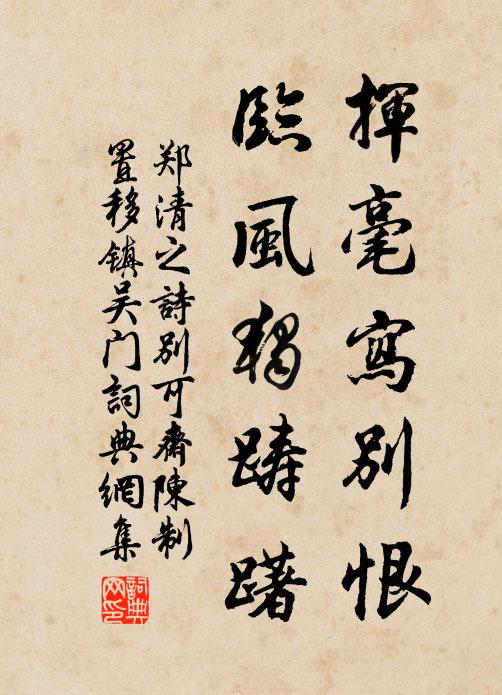 揮毫寫別恨
臨風獨躊躇
郑清之詩別可齋陳制
置移鎮吴门詞典網集
詞典网印